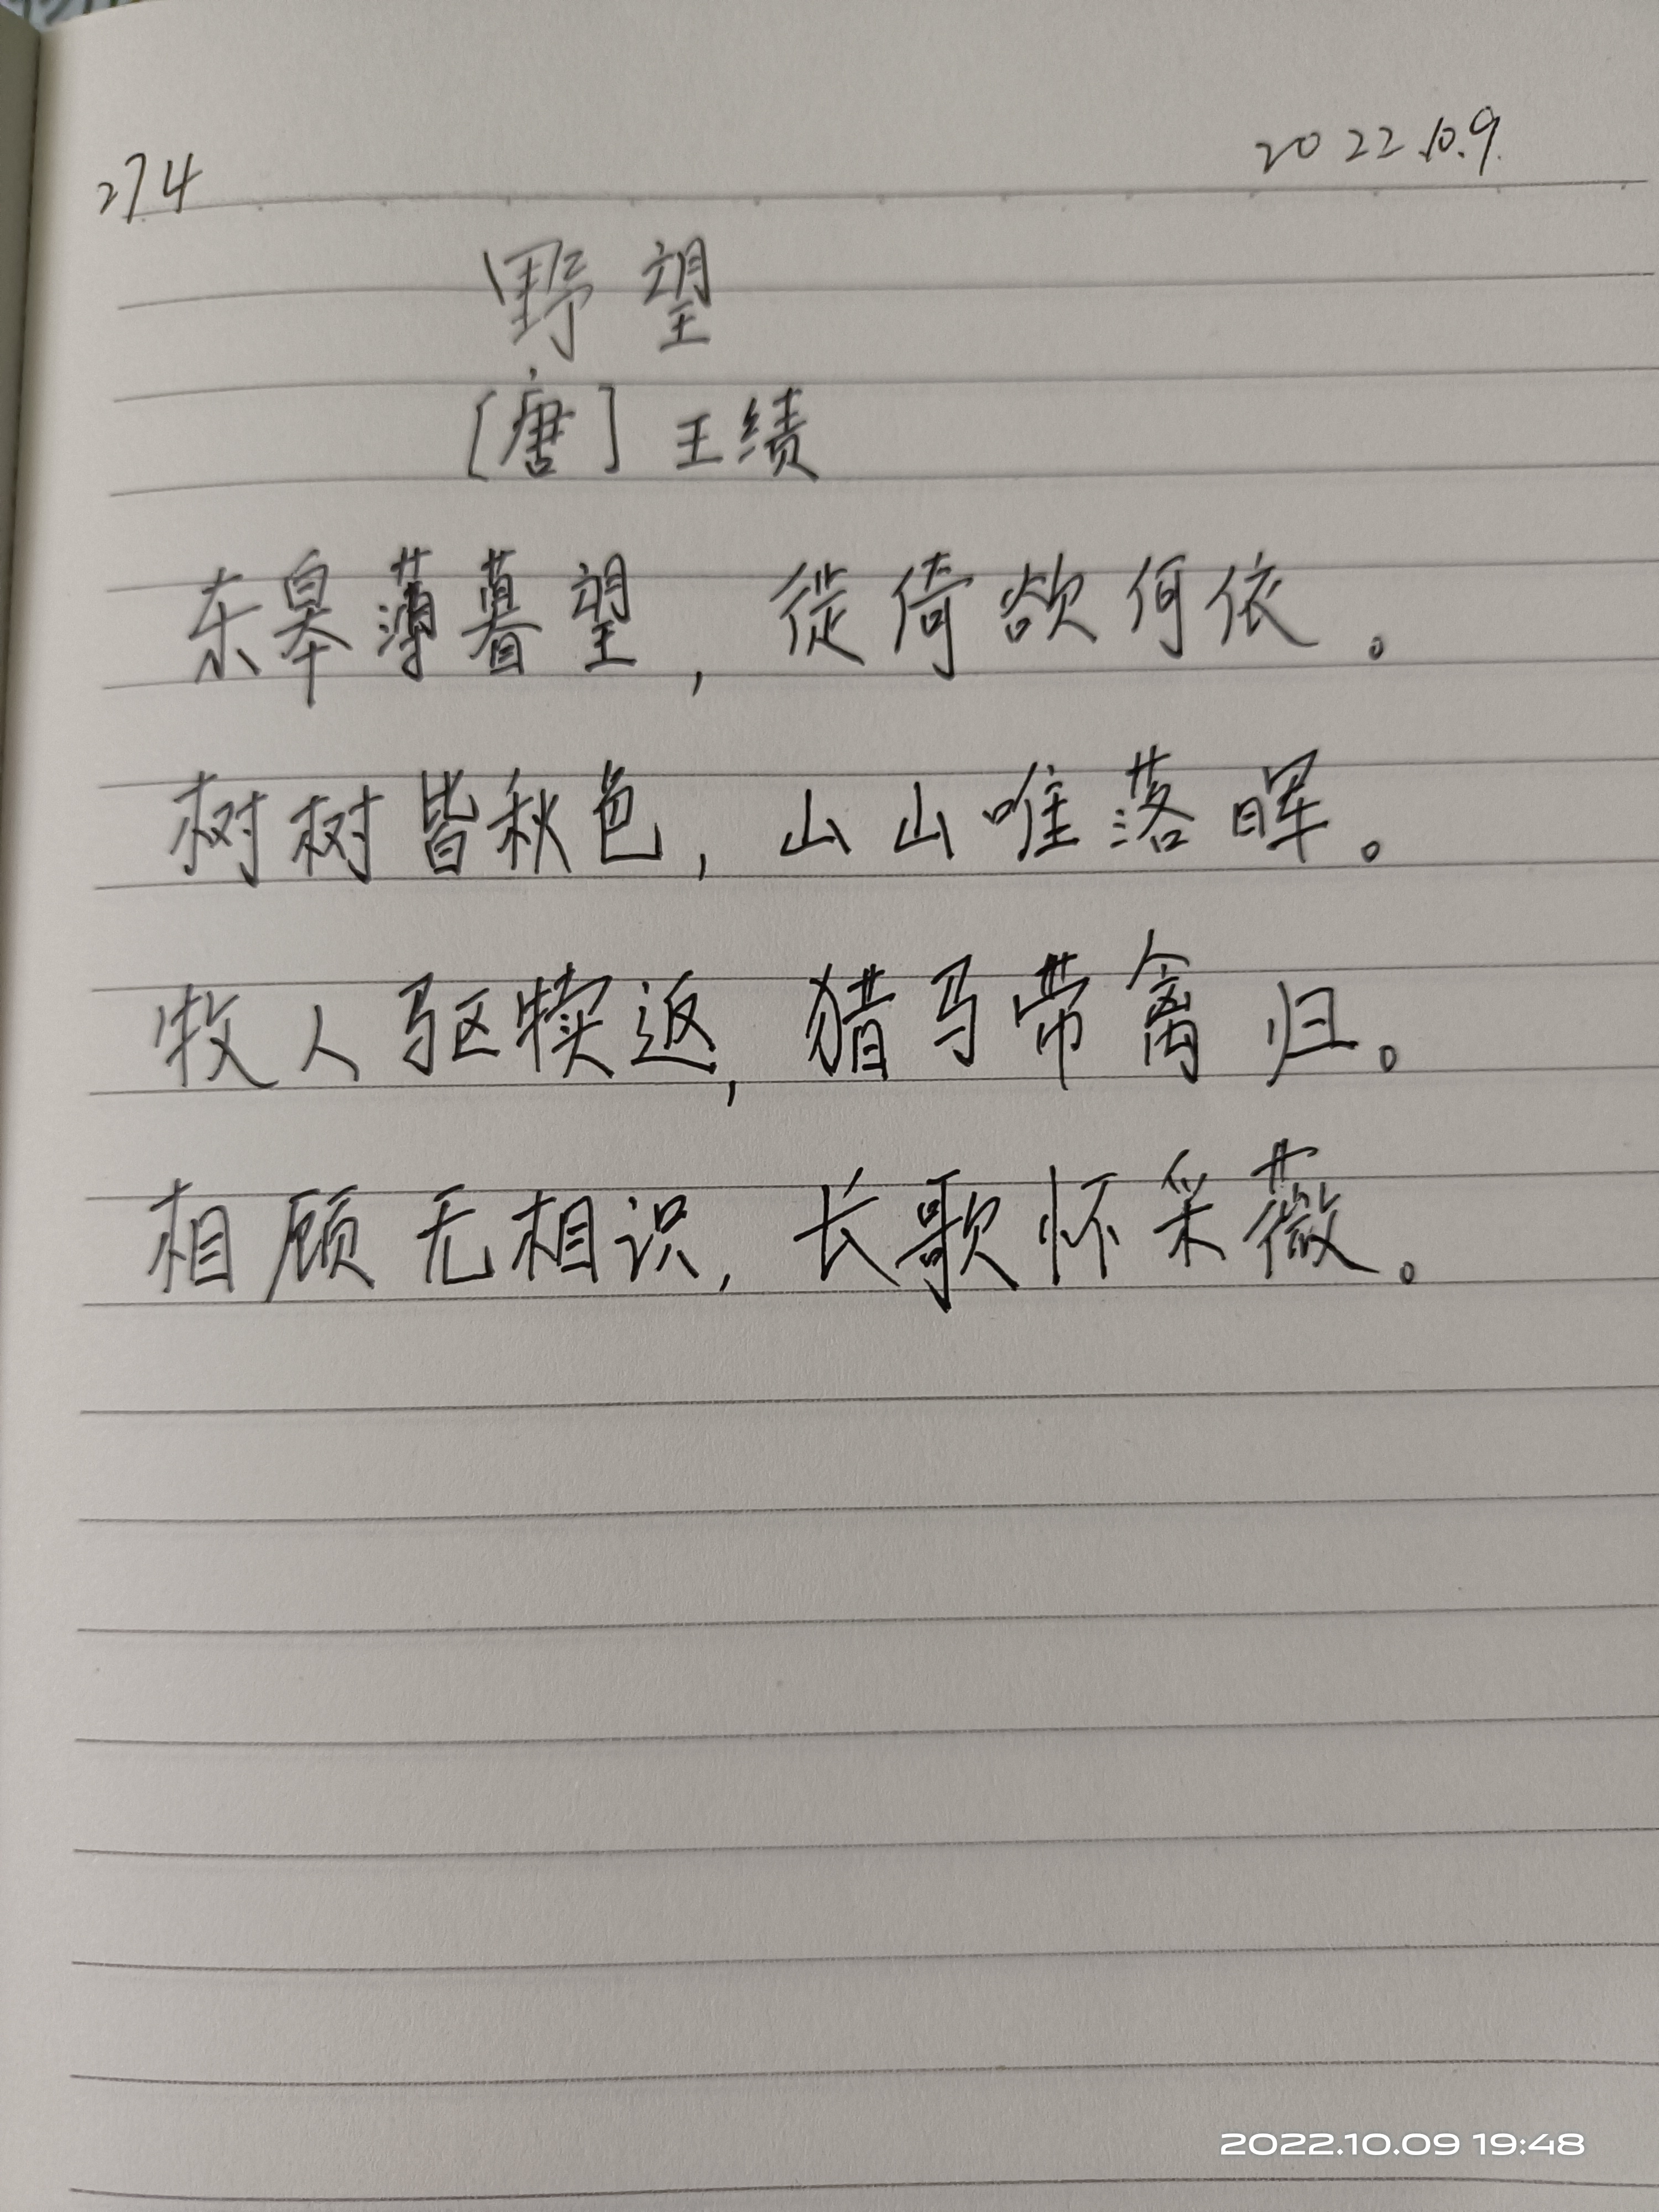 274
2022.10.9.
野望
[唐] 王绩
东皋薄暮望，徙倚欲何依。
树树皆秋色，山山唯落晖。
牧人驱犊返，猎马带禽归。
相顾无相识，长歌怀采薇。
2022.10.09 19:48